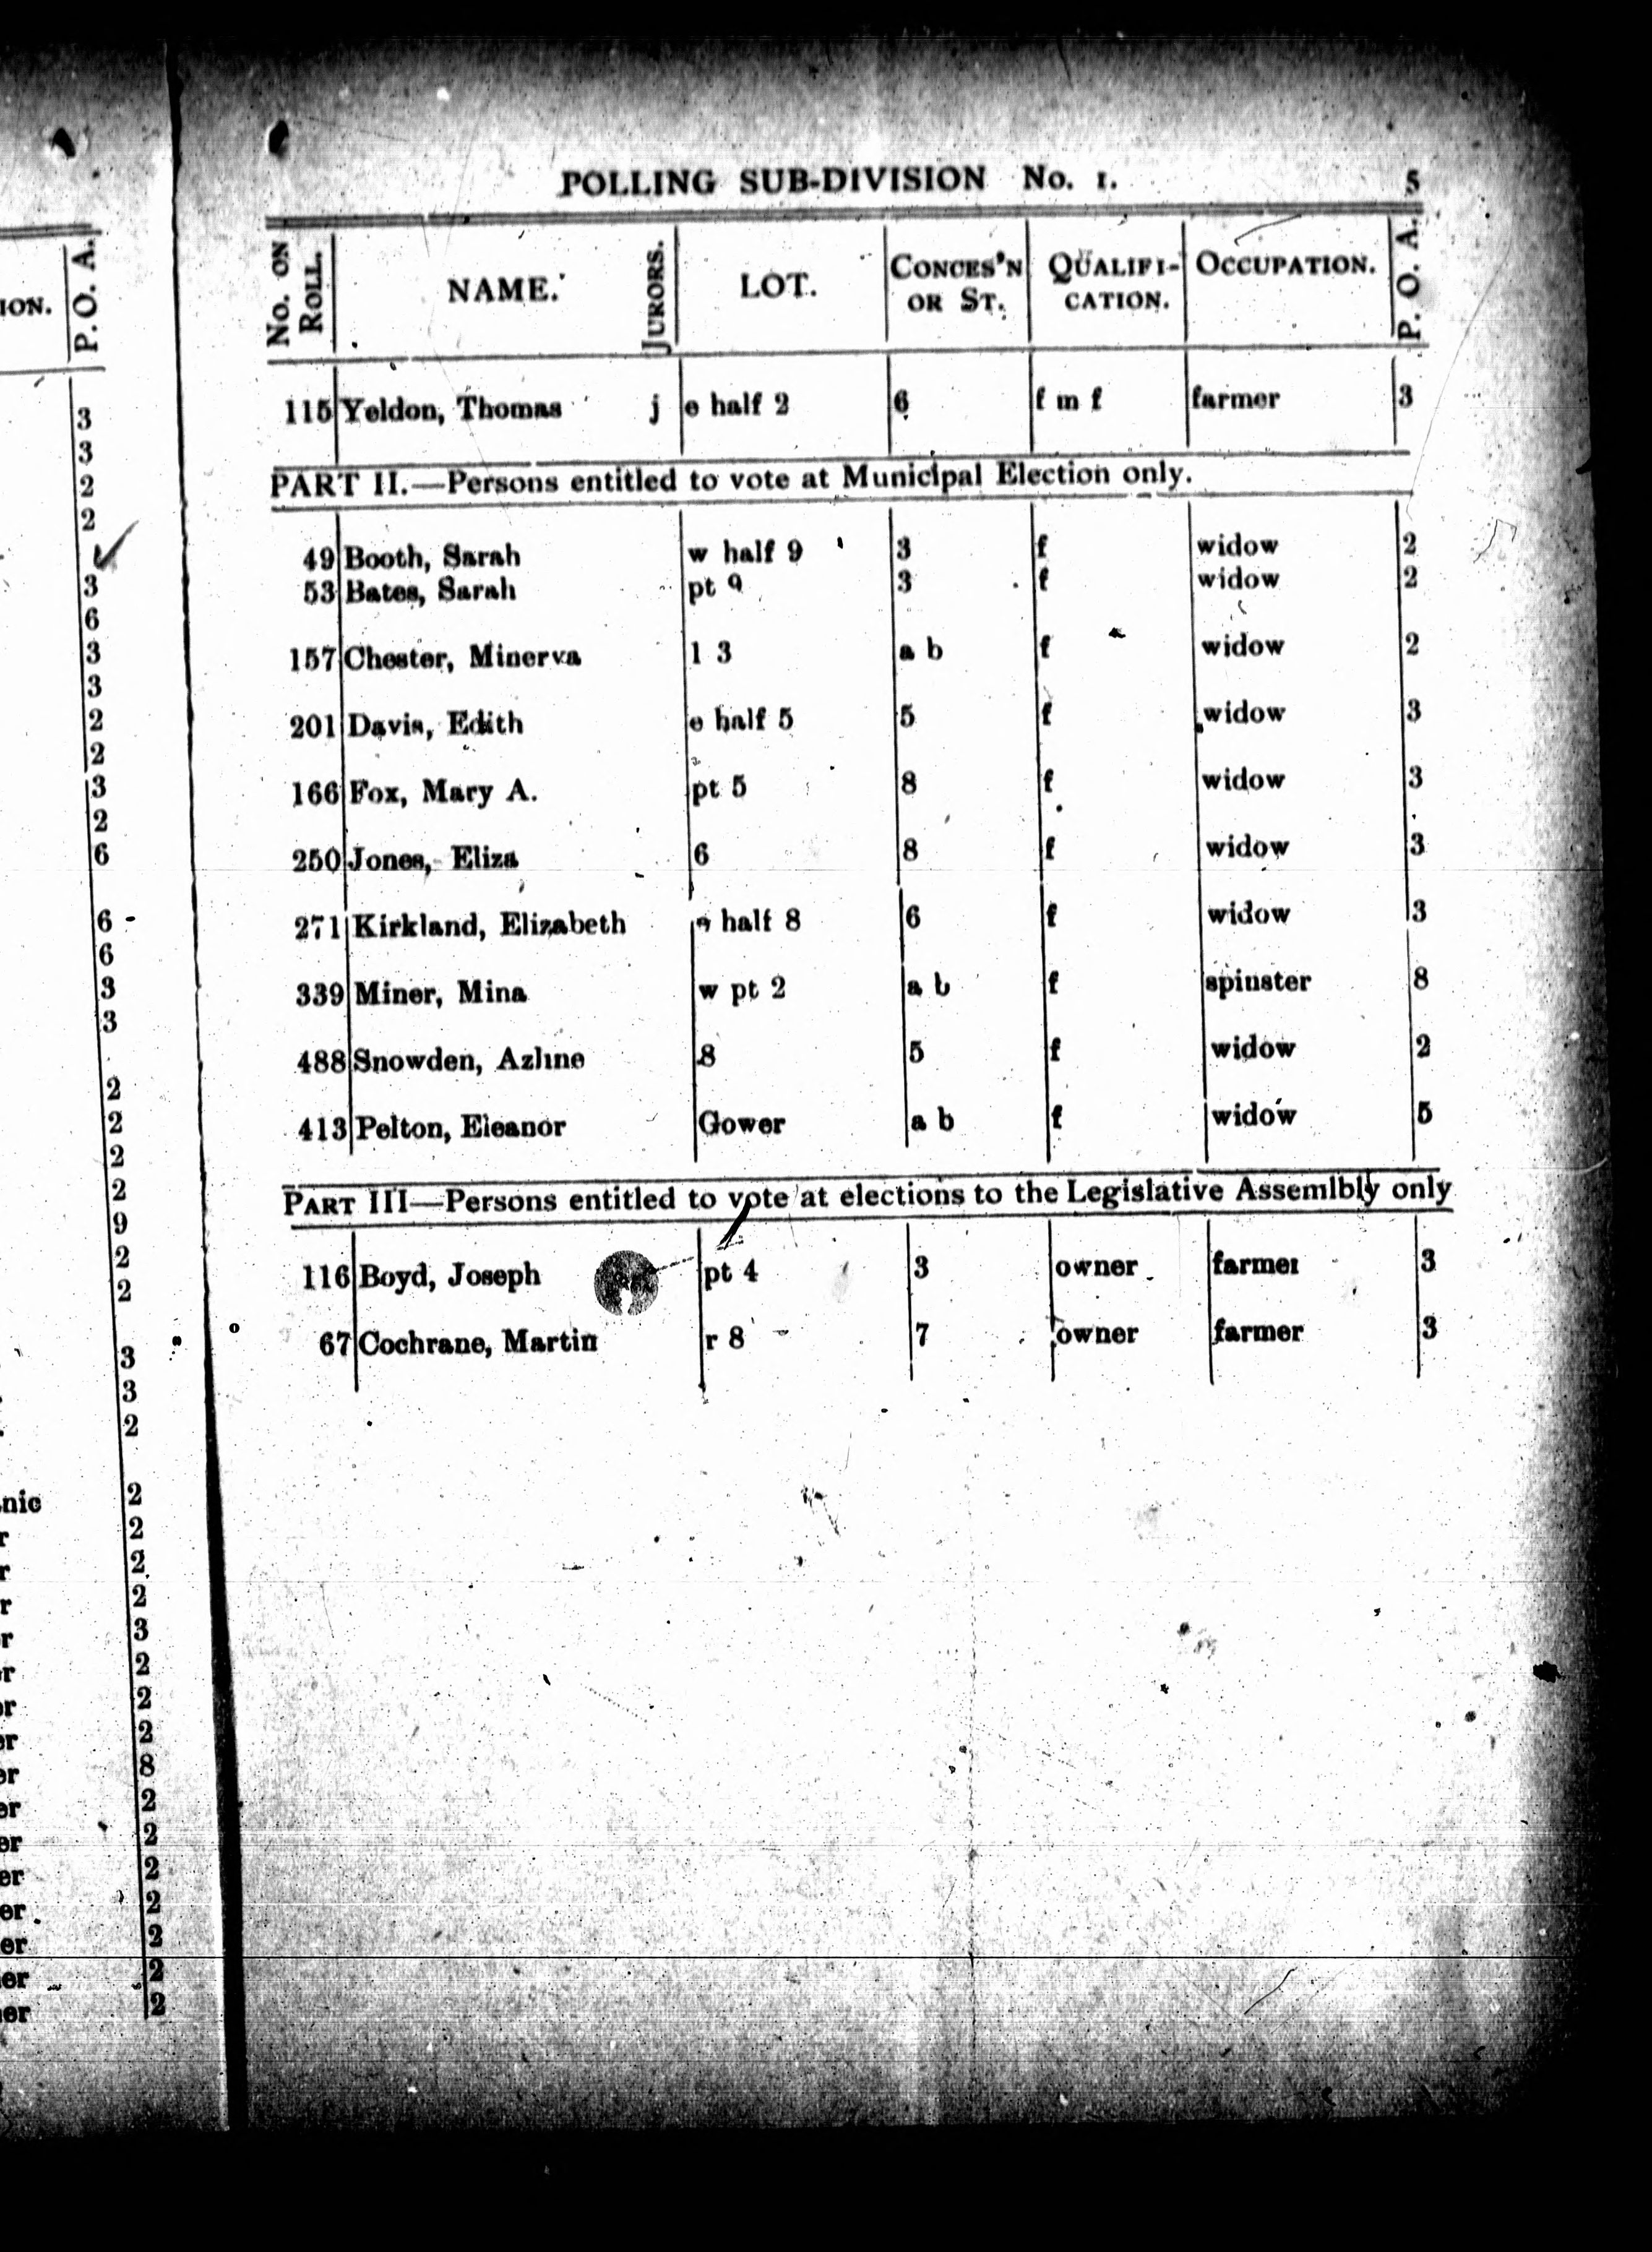 POLLING SUB-DIVISION No. 1. 5
No. ON ROLL. NAME. JURORS. LOT. CONCES'N OR ST. QUALIFI-CATION. OCCUPATION. P. O. A.
115 Yeldon, Thomas j e half 2 6 f m f farmer 3
PART II.—Persons entitled to vote at Municipal Election only.
49 Booth, Sarah w half 9 3 f widow 2
53 Bates, Sarah pt 9 3 f widow 2
157 Chester, Minerva 1 3 a b f widow 2
201 Davis, Edith e half 5 5 f widow 3
166 Fox, Mary A. pt 5 8 f widow 3
250 Jones, Eliza 6 8 f widow 3
271 Kirkland, Elizabeth half 8 6 f widow 3
339 Miner, Mina w pt 2 a b f spinster 8
488 Snowden, Azline 8 5 f widow 2
413 Pelton, Eleanor Gower a b f widow 5
PART III—Persons entitled to vote at elections to the Legislative Assemlbly only
116 Boyd, Joseph pt 4 3 owner farmer 3
67 Cochrane, Martin r 8 7 owner farmer 3
ION. P. O. A.
3
3
2
2
3
6
3
3
2
2
3
2
6
6
6
3
3
2
2
2
2
9
2
2
3
3
2
nic 2
r 2
r 2
r 2
r 3
er 2
or 2
er 2
er 8
er 2
er 2
er 2
er 2
er 2
er 2
er 2